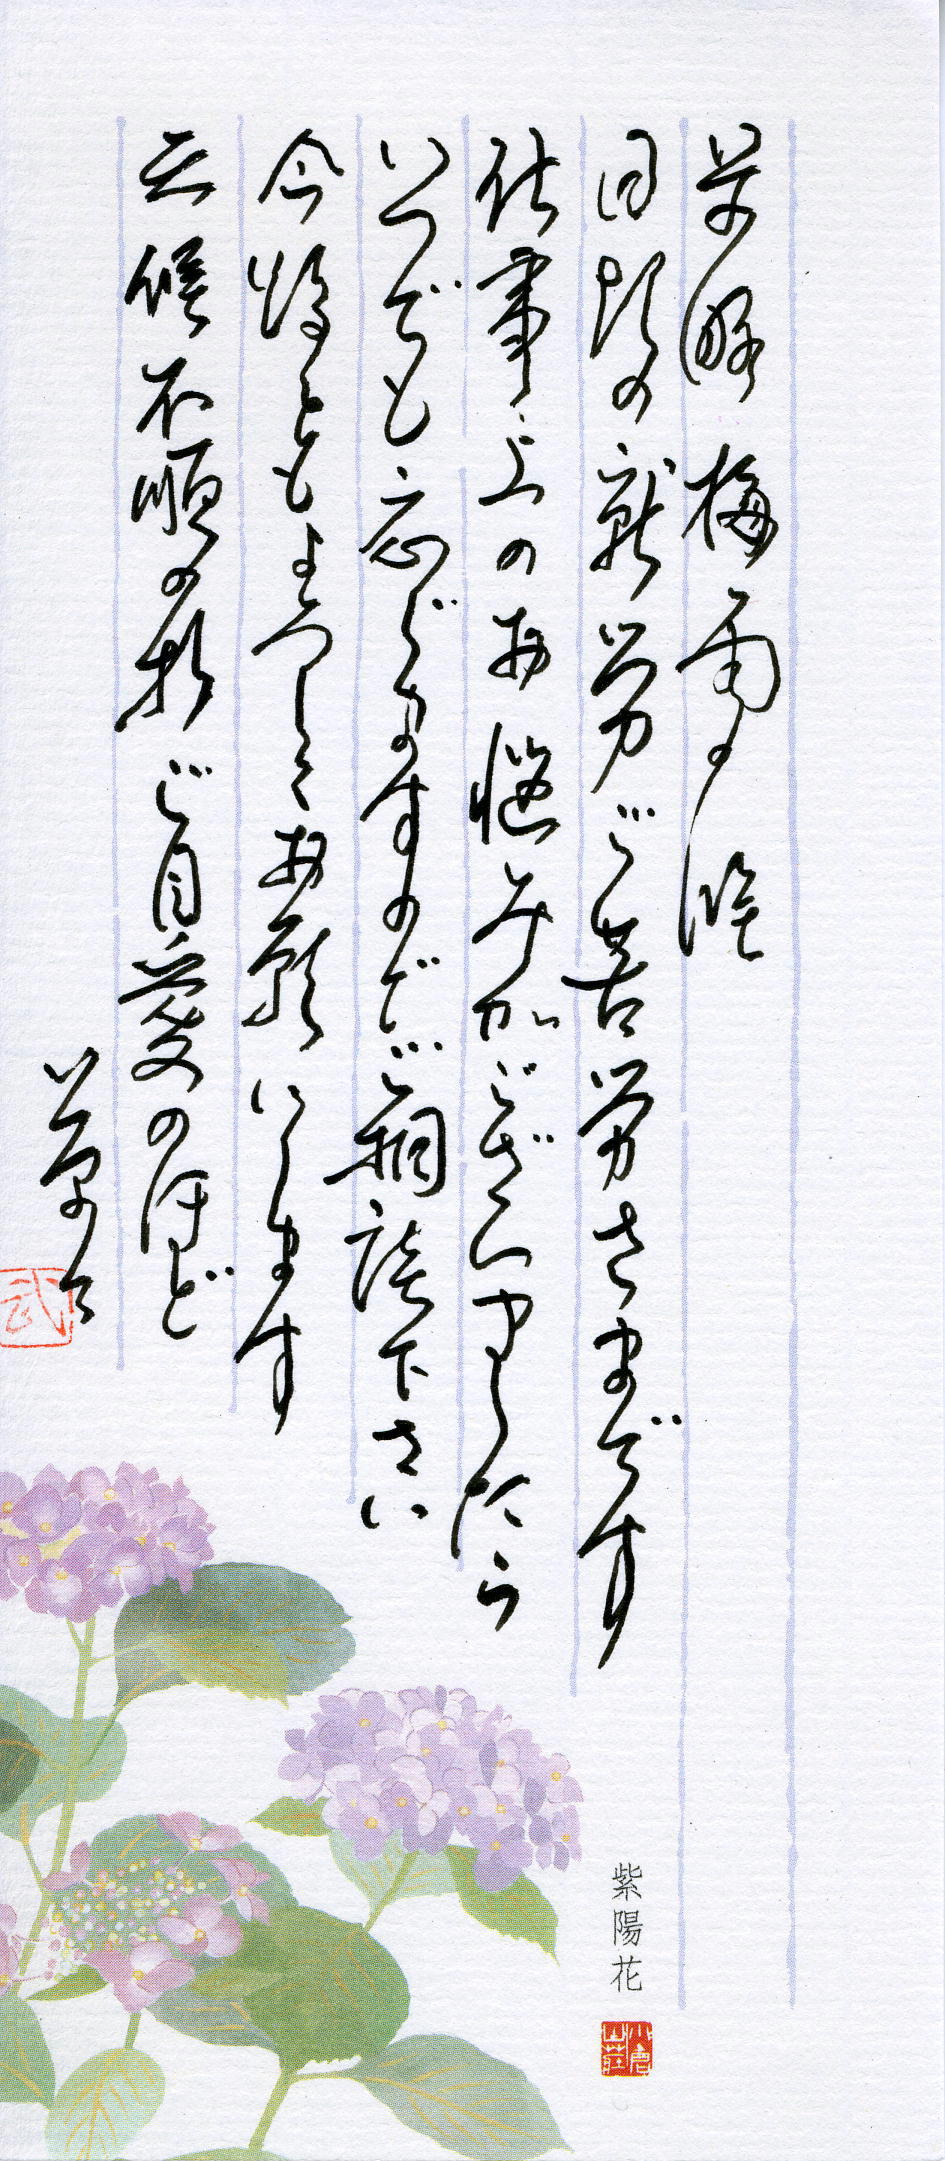 前略 梅雨の候
日頃の就労ご苦労さまです
仕事上のお悩みがございましたら
いつでも応じますのでご相談下さい
今後ともよろしくお願いします
天候不順の折 ご自愛のほど
草々
武
紫陽花
小倉山荘